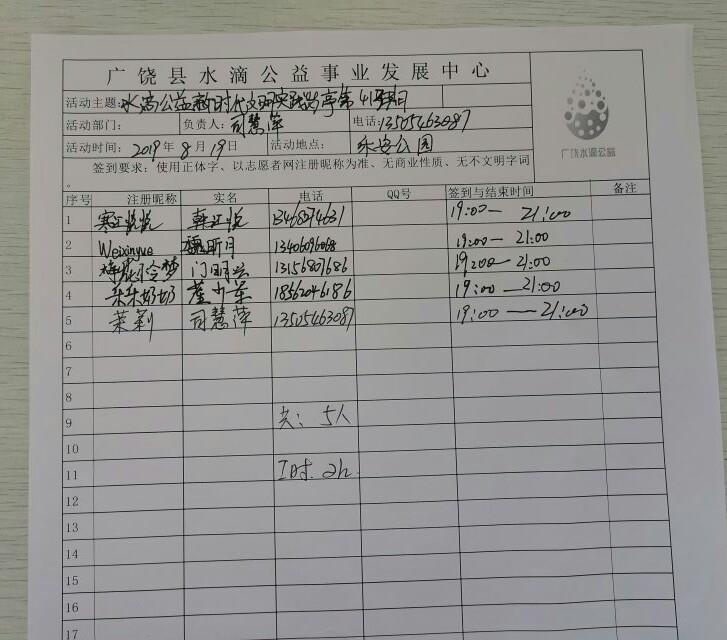 广饶县水滴公益事业发展中心
活动主题:水滴公益新时代文明实践岗亭第41期
活动部门: 负责人:司慧萍 电话:13505463087
活动时间:2019年8月19日 活动地点:乐安公园
签到要求:使用正体字、以志愿者网注册昵称为准、无商业性质、无不文明字词
。
广饶水滴公益
序号 注册昵称 实名 电话 QQ号 签到与结束时间 备注
1 19:00— 21:00
2 Weixinyue 13406096068 19:00— 21:00
3 门明兰 13156807686 19:00— 21:00
4 朵朵奶奶 18562046186 19:00—21:00
5 茉莉 司慧萍 13505463087 19:00—21:00
6
7
8
9 共:5人
10
11 工时.2h
12
13
14
15
16
17